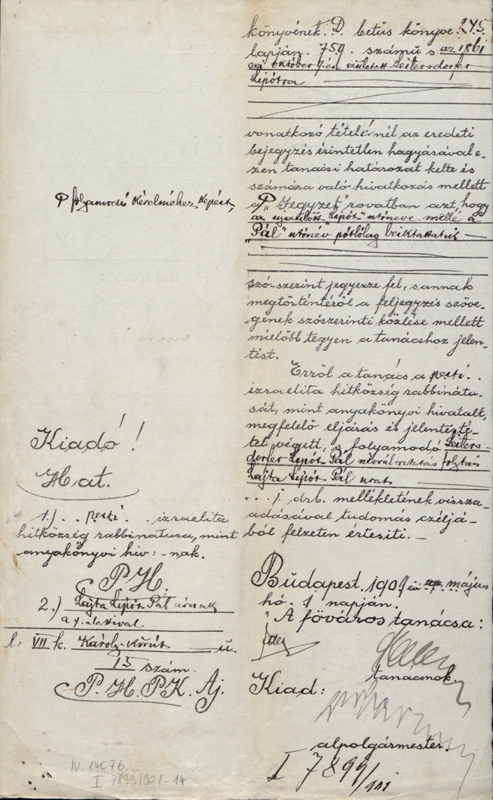 könyvének D. betűs könyve 245.
lapján 759. számú s az 1861
évi október 9-én született Leitersdorfer
Lipótra
vonatkozó tételénél az eredeti
bejegyzés érintetlen hagyásával e-
zen tanácsi határozat kelte és
számára való hivatkozás mellett
a „Jegyzet" rovatban azt, hogy
az újszülött „Lipót" utóneve mellé a
„Pál" utónév pótlólag beiktattatik
szó szerint jegyezze fel, s annak
megtörténtéről a feljegyzés szöve-
gének szószerinti közlése mellett
mielőbb tegyen a tanácshoz jelen-
tést.
Erről a tanács a pesti
izraelita hitközség rabbinátu-
sát, mint anyakönyvi hivatalt,
megfelelő eljárás és jelentésté-
tel végett, s folyamodó Leiters-
dorfer Lipót Pál névváltoztatás folytán
Lajta Lipót Pál urat
1 drb. mellékletének vissza-
adásával tudomás czéljá-
ból felzeten értesíti. —
Budapest, 1909 évi május
hó 1 napján.
A főváros tanácsa:
tanácsnok.
Kiad:
alpolgármester.
I 7899/
P folyamodó kérelméhez képest,
Kiadó!
Hat.
1.) pesti izraelita
hitközség rabbinátusa, mint
anyakönyvi hiv: -nak.
P. H.
2.) Lajta Lipót Pál úrnak
a /. alattival
l: VII. k. Károly-körút u.
13 szám.
P. H. P. K. Aj.
IV. 1407b
I 7899/901-14